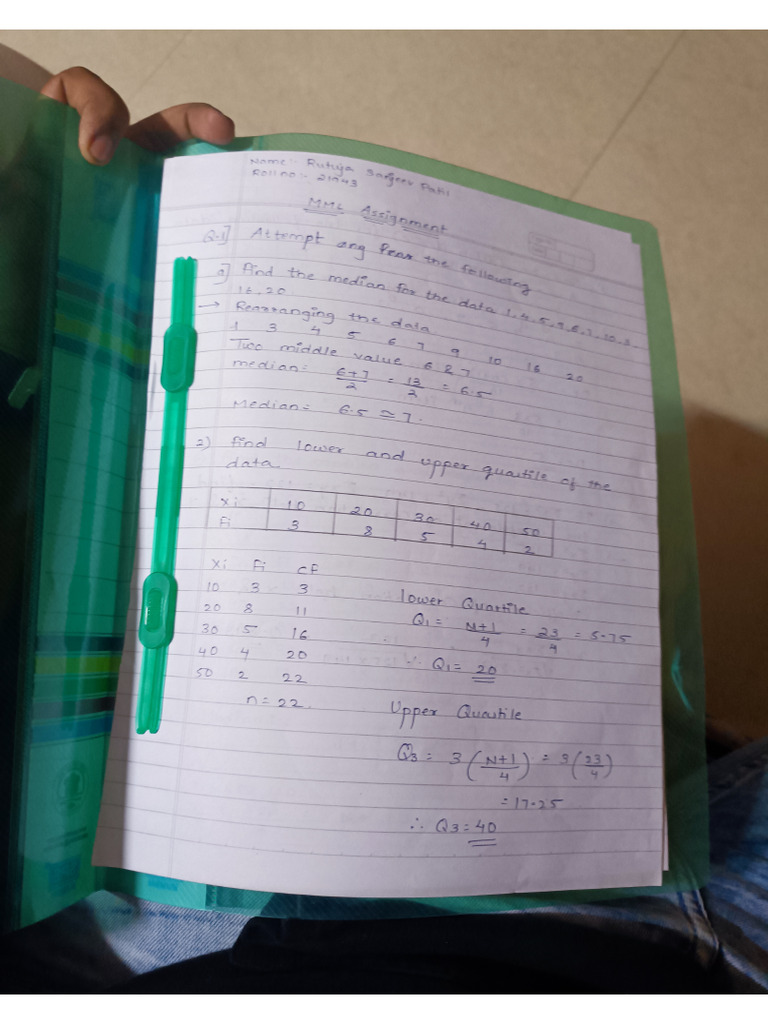 Name:- Rutuja Sanjeev Patil
Roll no:- 21043
MML Assignment
Q.1] Attempt any Four the following
a] Find the median for the data 1, 4, 5, 9, 6, 7, 10, 3,
16, 20
→ Rearranging the data
1 3 4 5 6 7 9 10 16 20
Two middle value 6 & 7
median = 6+7/2 = 13/2 = 6.5
Median = 6.5 ≃ 7.
2) find lower and upper quartile of the
data.
xi 10 20 30 40 50
fi 3 8 5 4 2
xi fi cf
10 3 3
20 8 11
30 5 16
40 4 20
50 2 22
n = 22.
lower Quartile
Q1 = N+1/4 = 23/4 = 5.75
∴ Q1 = 20
Upper Quartile
Q3 = 3 (N+1/4) = 3 (23/4)
= 17.25
∴ Q3 = 40